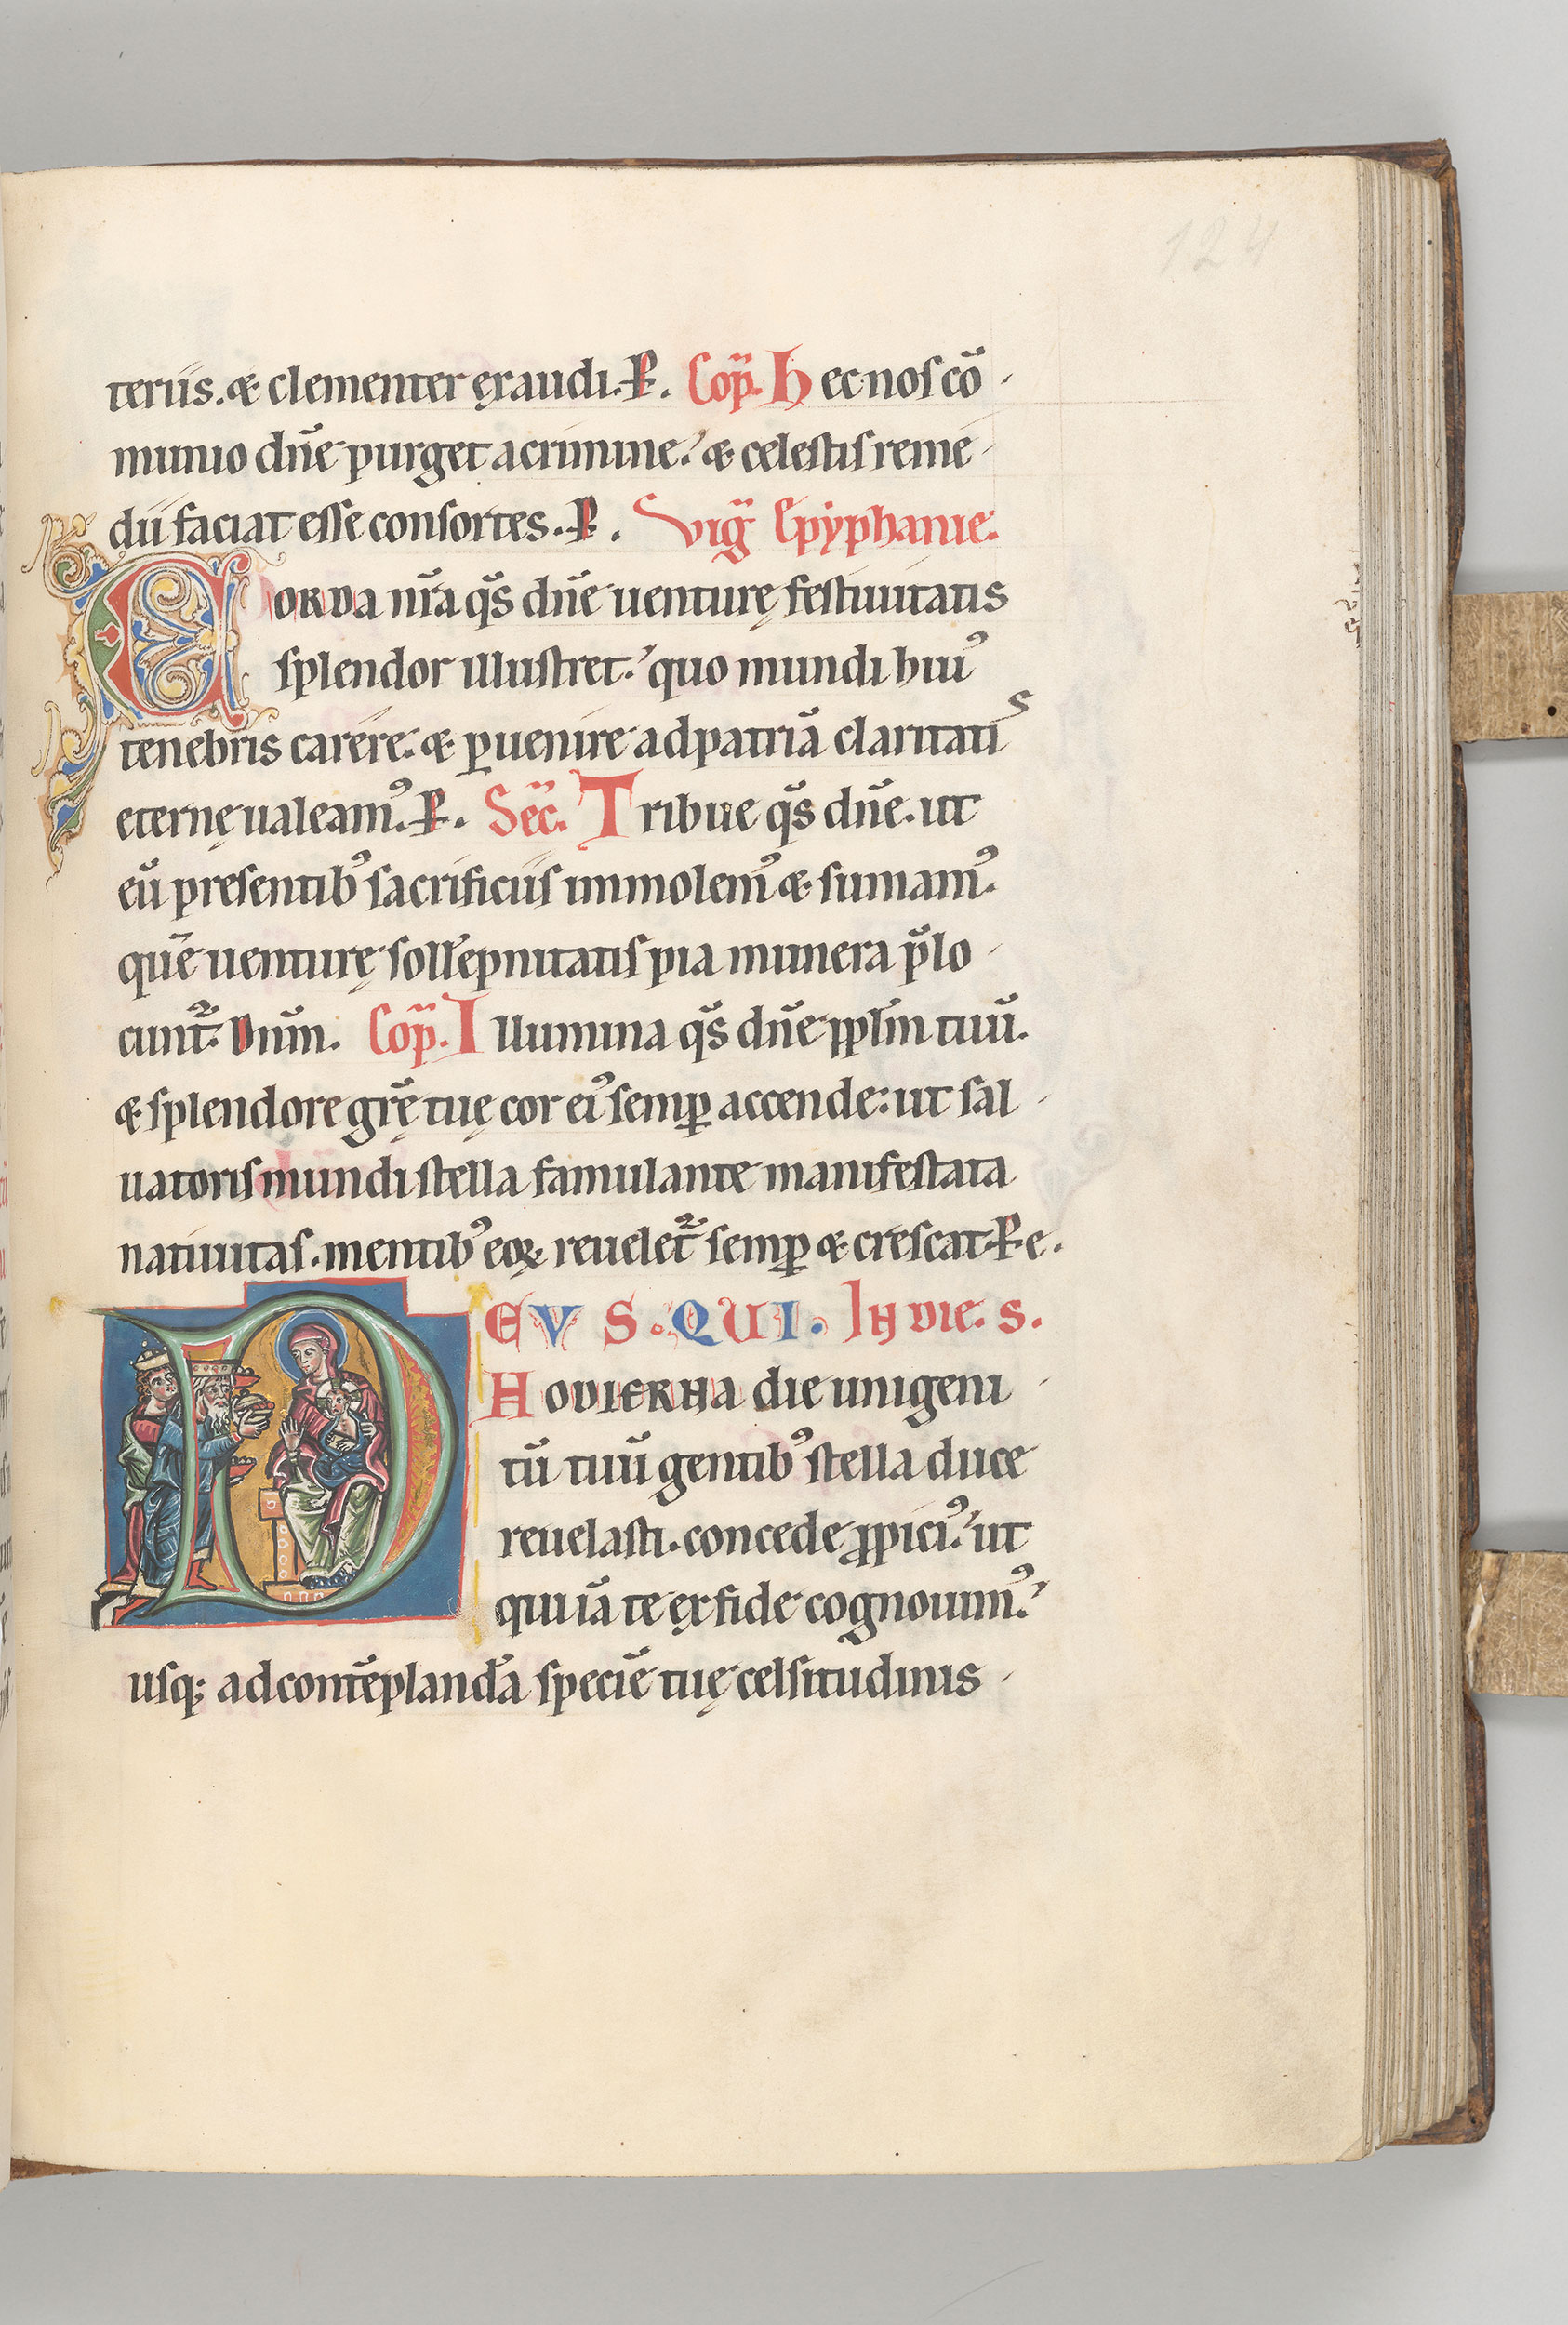 124
teriis. & clementer exaudi. P. Cōp̄. Hec nos cō-
munio dn̄e purget a crimine. & celestis reme-
dii faciat esse consortes. P. Viḡ Epyphanie.
CORDA nr̄a qs̄ dn̄e uenturę festiuitatis
splendor illustret. quo mundi huiꝰ
tenebris carere. & ꝑuenire ad patriā claritatis
eternę ualeamꝰ. P. Sec̄. Tribue qs̄ dn̄e. ut
eū presentibꝰ sacrificiis immolemꝰ & sumamꝰ.
quē uenturę sollēpnitatis pia munera p̄lo-
cunt᷑. Dn̄m. Cōp̄. Illumina qs̄ dn̄e ppl̄m tuū.
& splendore gr̄ę tuę cor eiꝰ semꝑ accende: ut sal-
uatoris mundi stella famulante manifestata
natiuitas. mentibꝰ eoꝝ reuelet᷑ semꝑ & crescat. P e.
DEVS. QUI. In die. s.
HODIERNA die unigeni-
tū tuū gentibꝰ stella duce
reuelasti. concede ꝓpiciꝰ. ut
qui iā te ex fide cognouimꝰ.
usq; ad contēplandā speciē tuę celsitudinis-